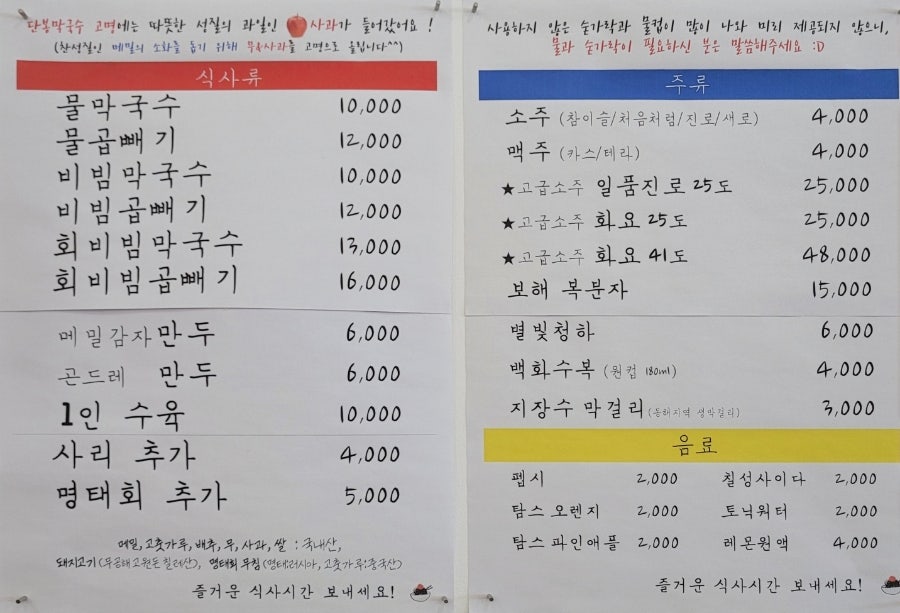 단봉막국수 고명에는 따뜻한 성질의 과일인 사과가 들어갔어요 !
(찬성질인 메밀의 소화를 돕기 위해 무&사과를 고명으로 올립니다^^)
식사류
물막국수 10,000
물곱빼기 12,000
비빔막국수 10,000
비빔곱빼기 12,000
회비빔막국수 13,000
회비빔곱빼기 16,000
메밀감자만두 6,000
곤드레 만두 6,000
1인 수육 10,000
사리 추가 4,000
명태회 추가 5,000
메밀, 고춧가루, 배추, 무, 사과, 쌀 : 국내산,
돼지고기(무공해고원돈 칠레산), 명태회무침(명태:러시아, 고춧가루:중국산)
즐거운 식사시간 보내세요!
사용하지 않은 숟가락과 물컵이 많이 나와 미리 제공되지 않으니,
물과 숟가락이 필요하신 분은 말씀해주세요 :D
주류
소주 (참이슬/처음처럼/진로/새로) 4,000
맥주 (카스/테라) 4,000
★고급소주 일품진로 25도 25,000
★고급소주 화요 25도 25,000
★고급소주 화요 41도 48,000
보해 복분자 15,000
별빛청하 6,000
백화수복 (원컵 180ml) 4,000
지장수 막걸리 (동해지역 생막걸리) 3,000
음료
펩시 2,000 칠성사이다 2,000
탐스 오렌지 2,000 토닉워터 2,000
탐스 파인애플 2,000 레몬원액 4,000
즐거운 식사시간 보내세요!